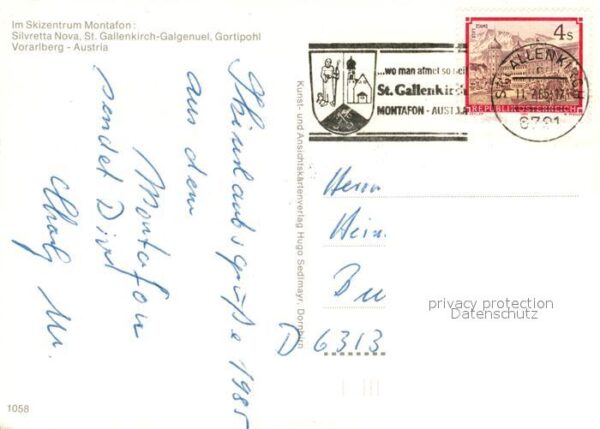 Im Skizentrum Montafon:
Silvretta Nova, St. Gallenkirch-Galgenuel, Gortipohl
Vorarlberg - Austria
Skiurlaubsgrüße 1985
aus dem
Montafon
sendet Dir
Kunst- und Ansichtskartenverlag Hugo Sedlmayr, Dornbirn
...wo man atmet so
St. Gallenkirch
MONTAFON - AUSTRIA
4 S
REPUBLIK ÖSTERREICH
ST. GALLENKIRCH
6791
Herrn
Hein
D 6313
privacy protection
Datenschutz
1058